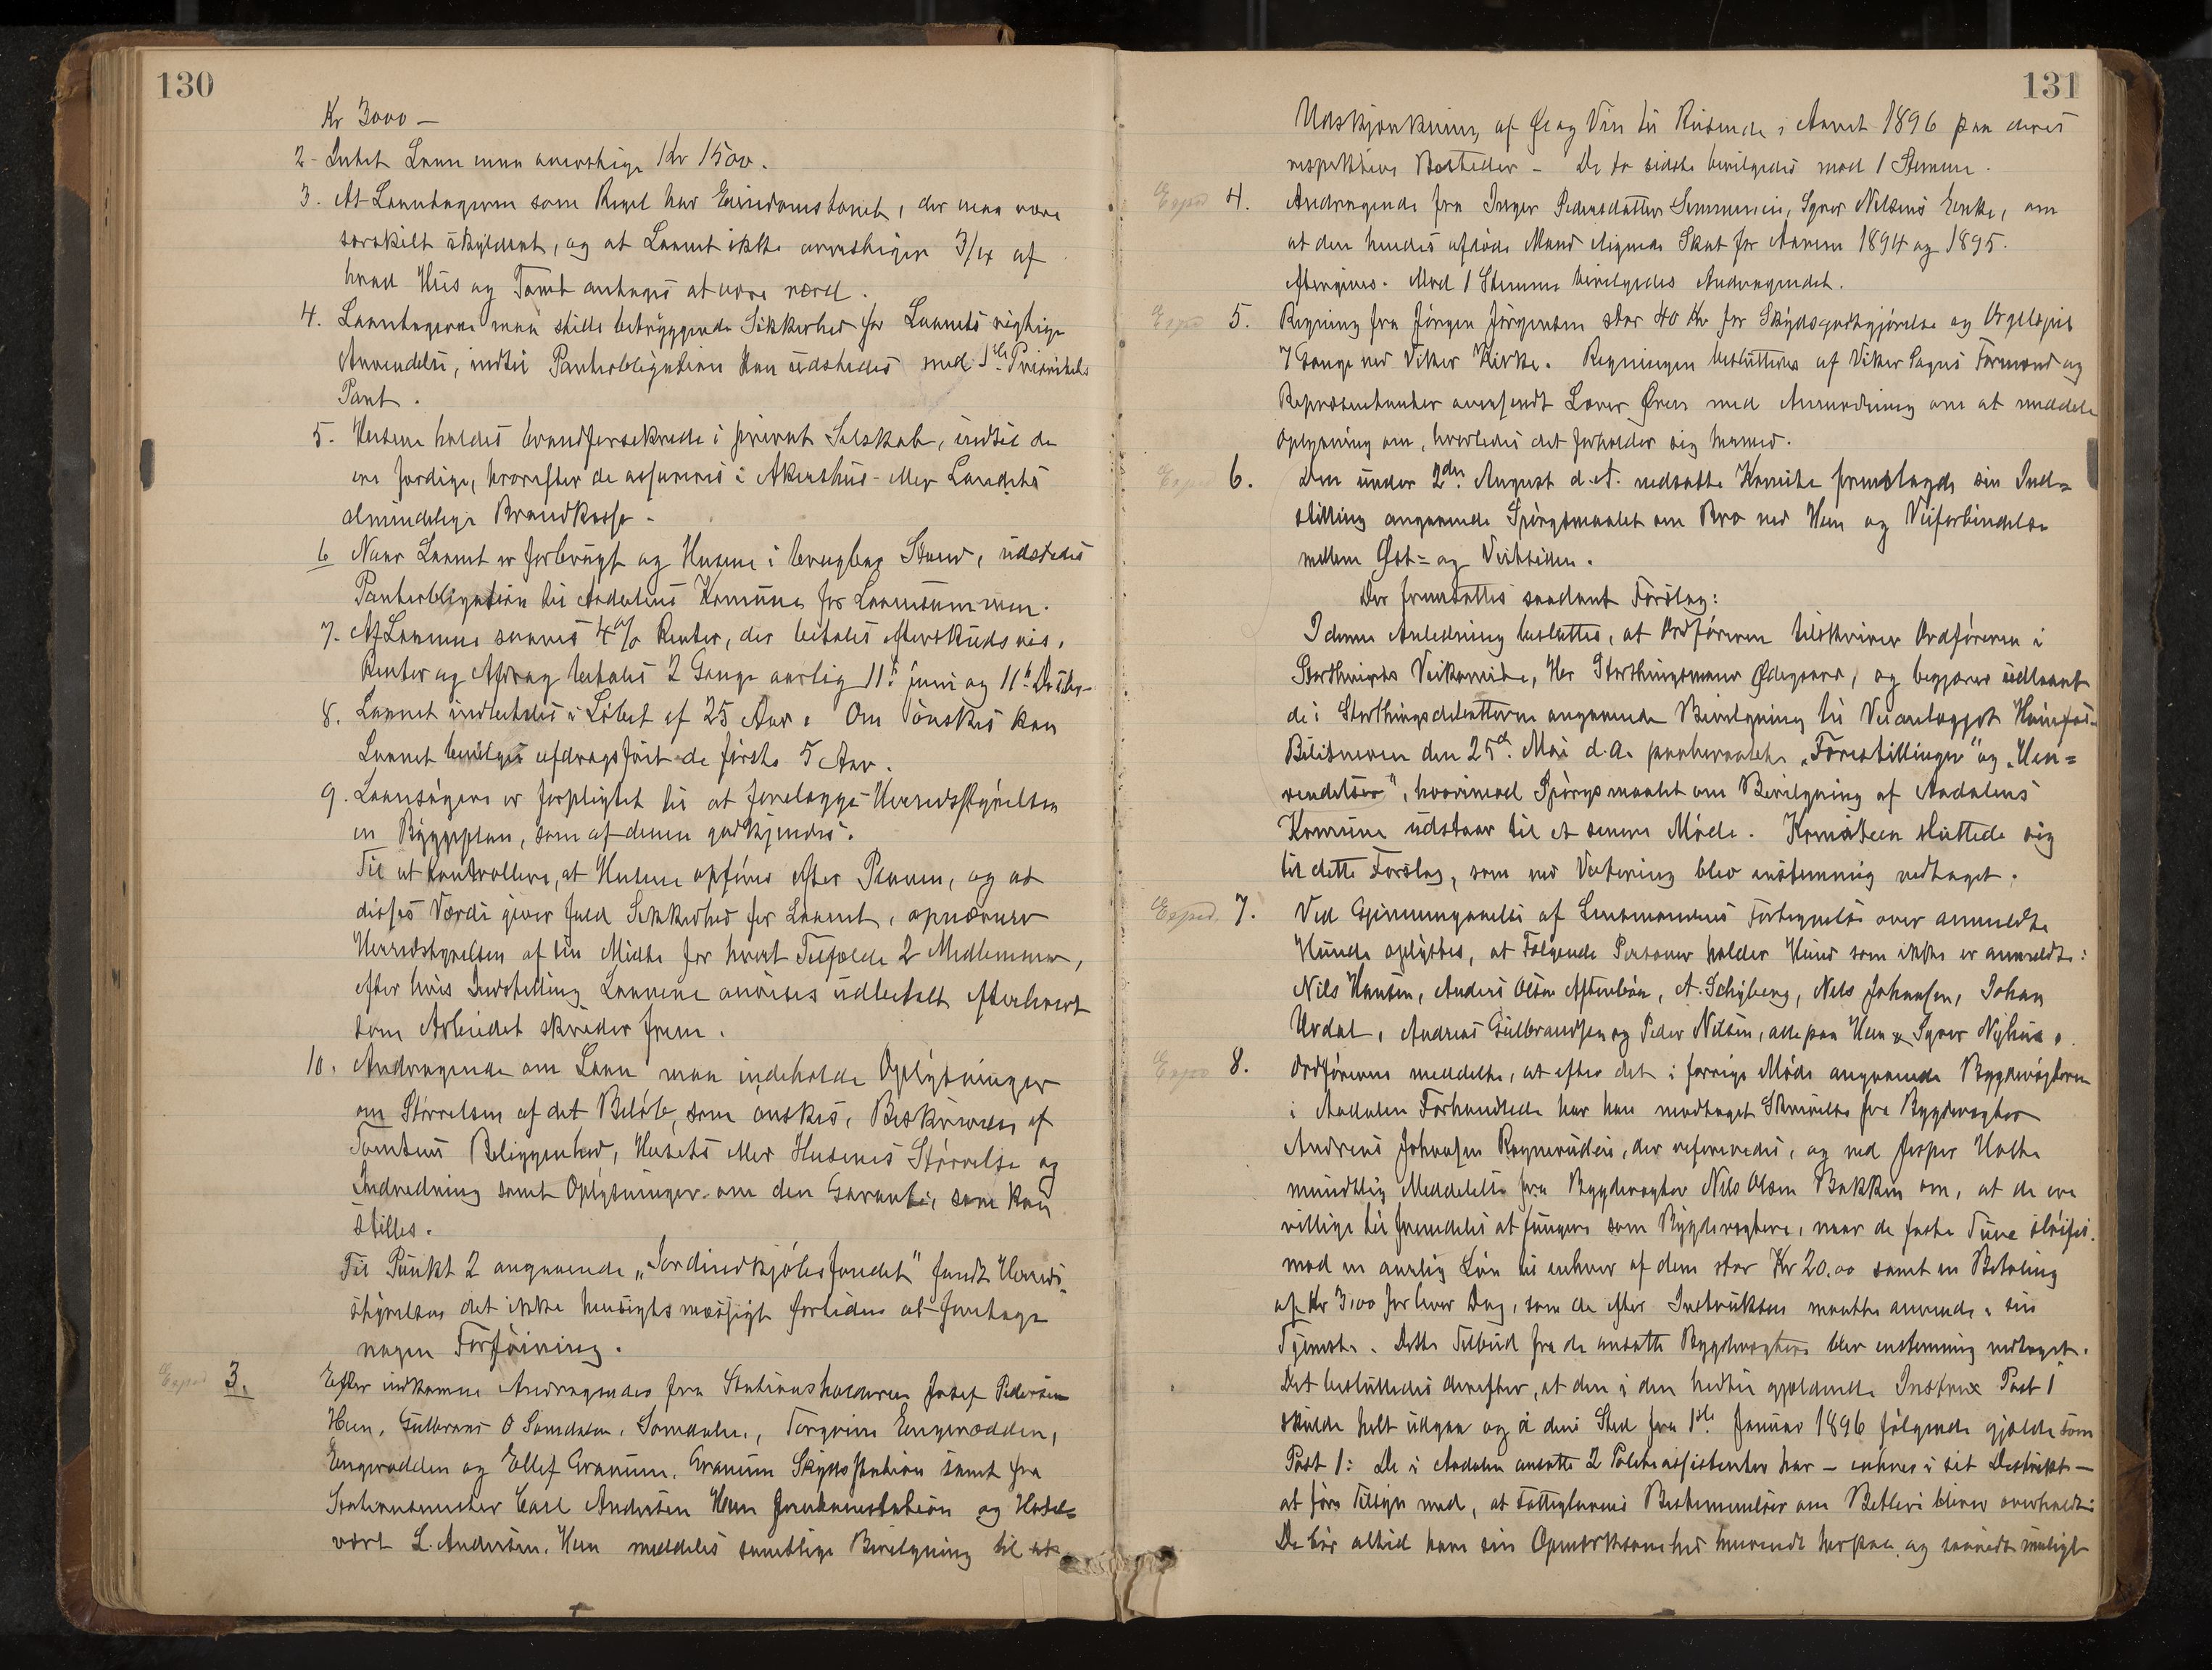 130
Kr 3000 –
2 - Intet Laan maa overstige Kr 1500.
3. At Laantageren som Regel har Eiendomstomt, der maa være
særskilt skyldsat, og at Laanet ikke overstiger 3/4 af
hvad Hus og Tomt antages at være værd.
4. Laantagerne maa stille betryggende Sikkerhed for Laanets rigtige
Anvendelse, indtil Panteobligation kan udstedes med 1ste Prioritets
Pant.
5. Husene holdes brandforsikrede i privat Selskab, indtil de
ere færdige, hvorefter de assureres i Akershus- eller Landets
almindelige Brandkasse.
6 Naar Laanet er forbrugt og Husene i brugbar Stand, udstedes
Panteobligation til Aadalens Komune for Laanesummen.
7. Af Laanene svares 4% Renter, der betales efterskudsvis.
Renter og Afdrag betales 2 Gange aarlig 11te Juni og 11te Desbr.
8. Laanet indbetales i Løbet af 25 Aar. Om ønskes kan
Laanet bevilges afdragsfrit de første 5 Aar.
9. Laansøgere er forpligtet til at forelægge Herredsstyrelsen
en Byggeplan, som af denne godkjendes.
Til at kontrollere, at Husene opføres efter Planen, og at
disses Værdi giver fuld Sikkerhed for Laanet, opnævner
Herredsstyrelsen af sin Midte for hvert Tilfælde 2 Medlemmer,
efter hvis Indstilling Laanene anvises udbetalt efterhvert
som Arbeidet skrider frem.
10. Andragende om Laan maa indeholde Oplysninger
om Størrelsen af det Beløb, som ønskes, Beskrivelse af
Tomtens Beliggenhed, Husets eller Husenes Størrelse og
Indredning samt Oplysninger om den Garanti, som kan
stilles.
Til Punkt 2 angaaende „Jordindkjøbsfondet" fandt Herreds-
styrelsen det ikke hensigtsmæssigt fortiden at foretage
nogen Forføining.
Exped 3. Efter indkomne Andragender fra Stationsholderne Josef Pedersen
Hen, Gulbrand O Somdalen, Somdalen, Torgrim Engerodden,
Engerodden og Ellef Granum, Granum Skydsstation samt fra
Stationsmester Carl Andersen Hen Jernbanestation og Hotel=
vært L. Andersen, Hen meddeles samtlige Bevilgning til at
131
Udskjænkning af Øl og Vin til Reisende i Aaret 1896 paa deres
respektive Bosteder – De to sidste bevilgedes mod 1 Stemme.
Exped 4. Andragende fra Inger Pedersdatter Semmenseie, Syver Nilsens Enke, om
at den hendes afdøde Mand ilignede Skat for Aarene 1894 og 1895.
eftergives. Mod 1 Stemme bevilgedes Andragendet.
Exped 5. Regning fra Jørgen Jørgensen stor 40 Kr for Skydsgodtgjørelse og Orgelspil
7 Gange ved Viker Kirke. Regningen besluttedes af Viker Sogns Formænd og
Repræsentanter oversendt Lærer Øren med Anmodning om at meddele
Oplysning om, hvorledes det forholder sig hermed.
Exped 6. Den under 2den August d. A. nedsatte Komite fremlagde sin Ind=
stilling angaaende Spørgsmaalet om Bro ved Hen og Veiforbindelse
mellem Øst= og Vestsiden.
Der fremsattes saadant Forslag:
I denne Anledning besluttes, at Ordføreren tilskriver Ordføreren i
Storthingets Veikomite, Hr Storthingsmand Ødegaard, og begjærer udlaant
de i Storthingsdebatterne angaaende Bevilgning til Veianlægget Hønefos-
Bilitneren den 25de Mai d.a. paaberaabte „Forestillinger" og „Hen=
vendelser", hvorimod Spørgsmaalet om Bevilgning af Aadalens
Komune udstaar til et senere Møde. Komiteen sluttede sig
til dette Forslag, som ved Votering blev enstemmig vedtaget.
Exped. 7. Ved Gjennemgaaelse af Lensmandens Fortegnelse over anmeldte
Hunde oplystes, at Følgende Personer holder Hund som ikke er anmeldte:
Nils Hansen, Anders Olsen, A. Schyberg, Nils Johansen, Johan
Urdal, Andreas Gulbrandsen og Peder Nilsen, alle paa Hen & Syver Nyhus.
Exped 8. Ordføreren meddelte, at efter det i forrige Møde angaaende Bygdevægterne
i Aadalen Forhandlede har han modtaget Skrivelse fra Bygdevægter
Andreas Johansen Ragnerudeie, der refereredes, og ved Jesper Holte
mundtlig Meddelelse fra Bygdevægter Nils Olsen Bakken om, at de ere
villige til fremdeles at fungere som Bygdevægtere, naar de faste Ture sløifes,
mod en aarlig Løn til enhver af dem stor Kr 20.00 samt en Betaling
af Kr 3,00 for hver Dag, som de efter Instruksen maatte anvende i sin
Tjeneste. Dette Tilbud fra de ansatte Bygdevægtere blev enstemmig vedtaget.
Det besluttedes derefter, at den i den hidtil gjældende Instrux Post 1
skulde helt udgaa og i dens Sted fra 1ste Januar 1896 følgende gjælde som
Post 1: De i Aadalen ansatte 2 Politiassistenter har – enhver i sit Distrikt –
at føre Tilsyn med, at Fattiglovens Bestemmelser om Betleri bliver overholdt.
De bør altid have sin Opmærksomhed henvendt herpaa, og saavidt muligt